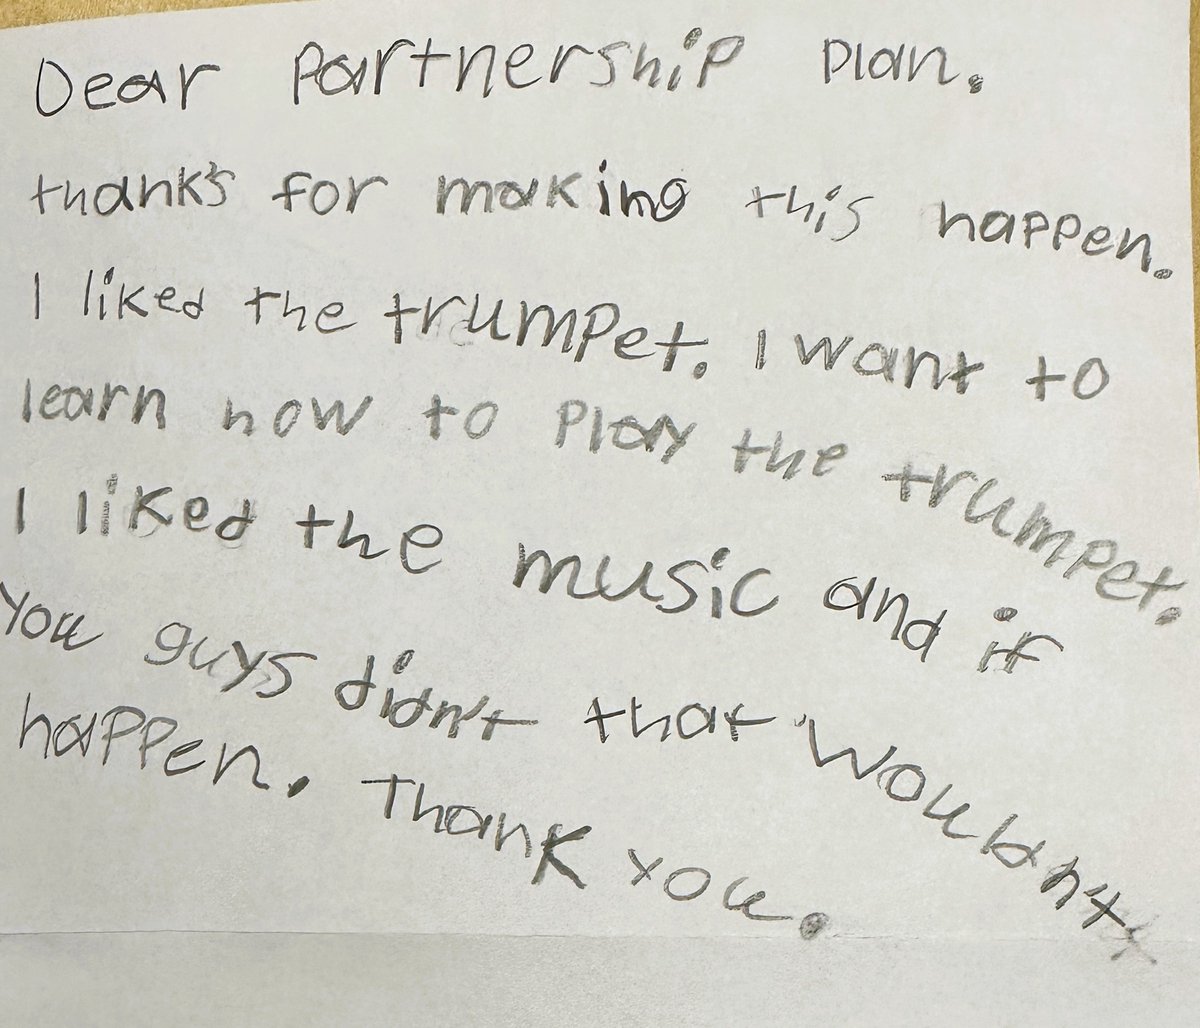 Dear Partnership Plan.
thanks for making this happen.
I liked the trumpet. I want to
learn how to play the trumpet.
I liked the music and if
You guys didn't that wouldn't
happen. Thank you.